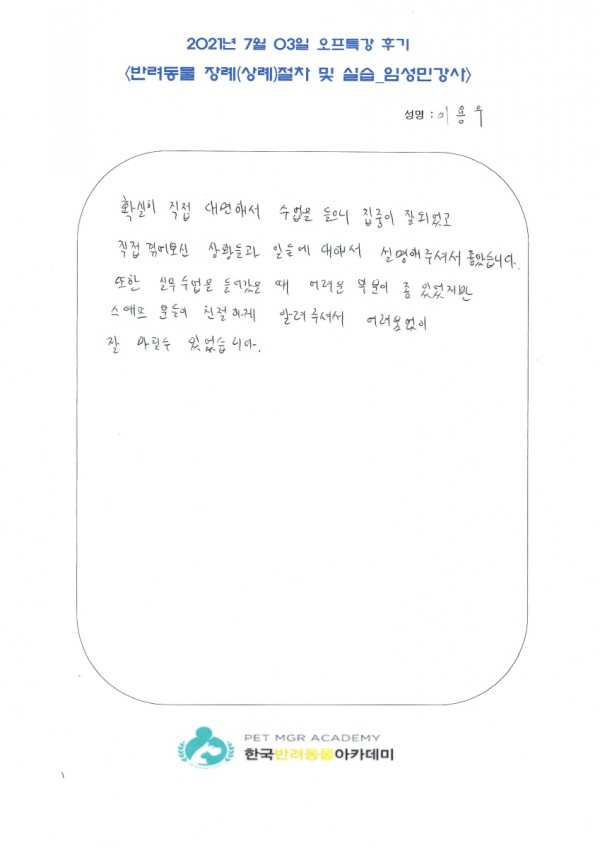 2021년 7월 03일 오프특강 후기
<반려동물 장례(상례)절차 및 실습_임성민강사>
성명 : 이용우
확실히 직접 대면해서 수업을 들으니 집중이 잘되었고
직접 겪어보신 상황들과 일들에 대해서 설명해주셔서 좋았습니다.
또한 실무수업을 들어갔을 때 어려운 부분이 좀 있었지만
스태프 분들이 친절하게 알려주셔서 어려움없이
잘 마칠수 있었습니다.
PET MGR ACADEMY
한국반려동물아카데미